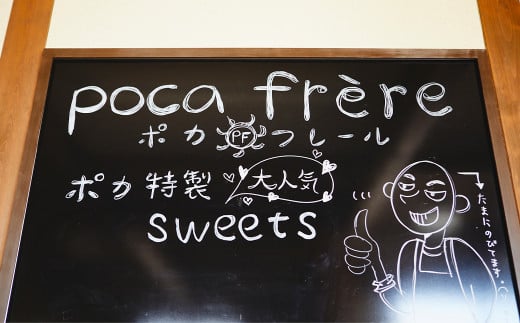 poca frère
ポカ PF フレール
ポカ特製 大人気
sweets
たまにのびてます。